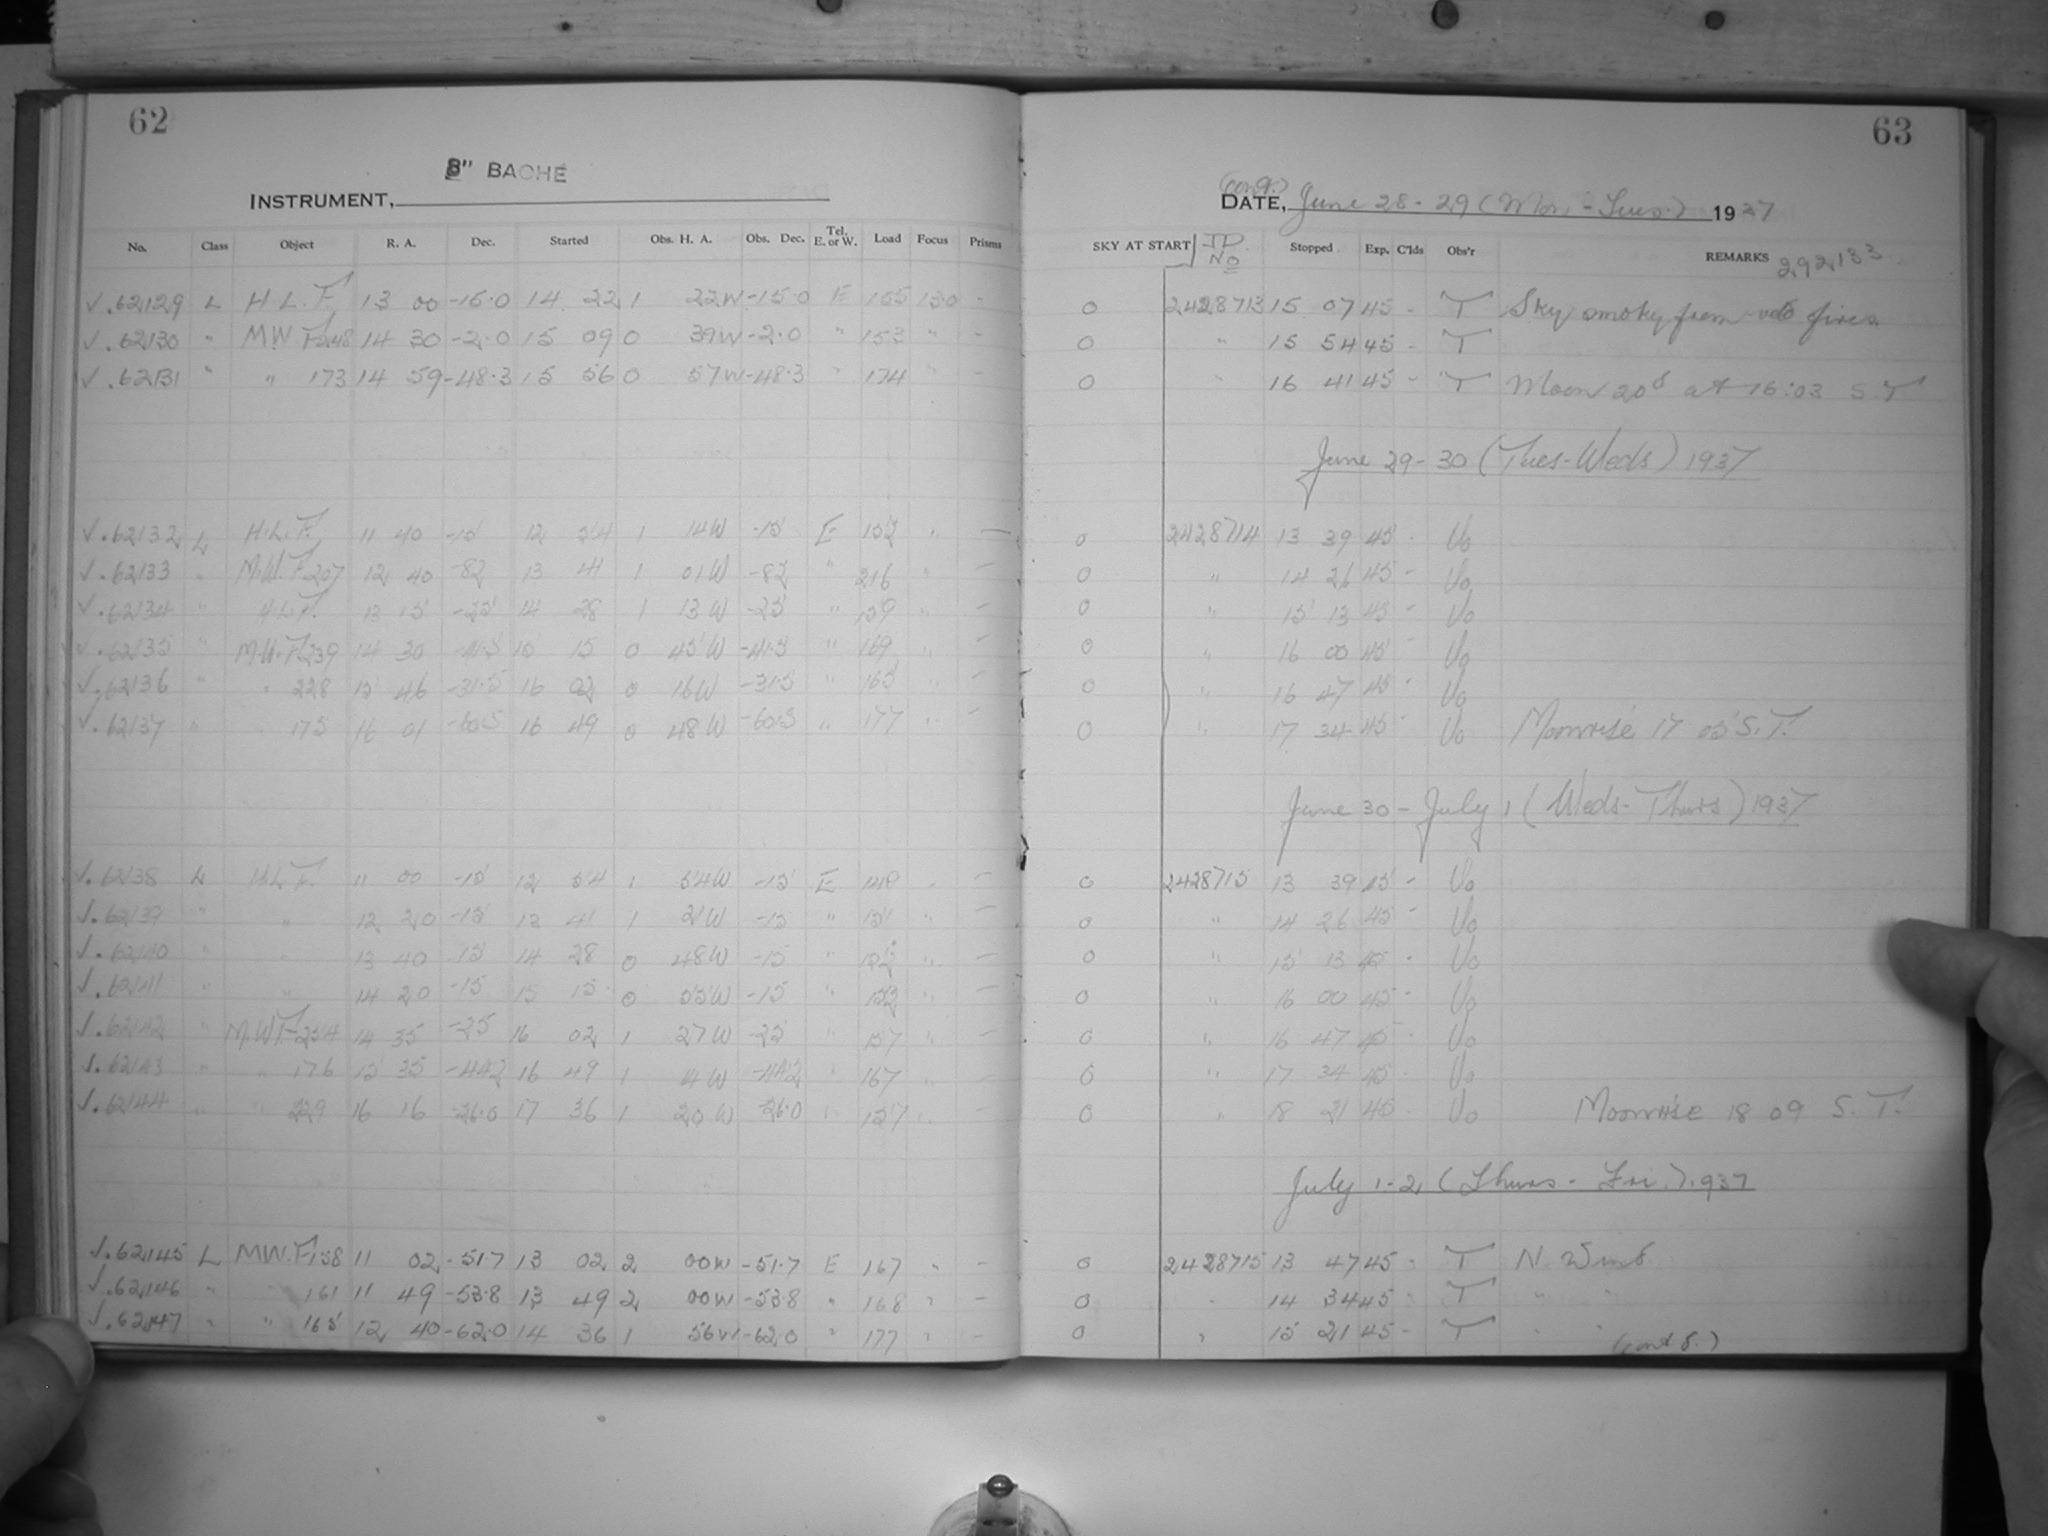 62
8" BACHE
INSTRUMENT,
No. Class Object R. A. Dec. Started Obs. H. A. Obs. Dec. Tel. E. or W. Load Focus Prisms
√.62129 L H L. F. 13 00 -15.0 14 22 1 22W -15.0 E 155 13.0 -
√.62130 " MW F248 14 30 -2.0 15 09 0 39W -2.0 " 153 " -
√.62131 " " 173 14 59 -48.3 15 56 0 57W -48.3 " 174 " -
√.62132 L H.L.F. 11 40 -15 12 54 1 14W -15 E 152 " -
√.62133 " M.W.F.207 12 40 -82 13 41 1 01W -82 " 216 " -
√.62134 " H.L.F. 13 15 -25 14 28 1 13W -25 " 159 " -
√.62135 " M.W.F.239 14 30 -41.5 15 15 0 45W -41.5 " 169 " -
√.62136 " " 228 15 46 -31.5 16 02 0 16W -31.5 " 165 " -
√.62137 " " 175 16 01 -60.5 16 49 0 48W -60.5 " 177 " -
√.62138 L H.L.F. 11 00 -15 12 54 1 54W -15 E - -
√.62139 " " 12 20 -15 13 41 1 21W -15 " 151 " -
√.62140 " 13 40 -15 14 28 0 48W -15 " 152 " -
√.62141 " " 14 20 -15 15 15 0 55W -15 " 152 " -
√.62142 " M.W.F.254 14 35 -25 16 02 1 27W -25 " 157 " -
√.62143 " " 176 15 35 -44.2 16 49 1 14W -44.2 " 167 " -
√.62144 " " 229 16 16 -26.0 17 36 1 20W -26.0 " 157 "
√.62145 L MW.F158 11 02 -51.7 13 02 2 00W -51.7 E 167 " -
√.62146 " 161 11 49 -53.8 13 49 2 00W -53.8 " 168 " -
√.62147 " " 165 12 40 -62.0 14 36 1 56W -62.0 " 177 " -
63
(cont.)
DATE, June 28-29 (Mon.-Tues.) 1937
SKY AT START JD No Stopped Exp. C'lds Obs'r REMARKS 292,133
0 2428713 15 07 45 - T Sky smoky from veld fires
0 " 15 54 45 - T
0 " 16 41 45 - T Moon 20° at 16:03 S T
June 29-30 (Tues-Weds) 1937
0 2428714 13 39 45 - Uo
0 " 14 26 45 - Uo
0 " 15 13 45 - Uo
0 " 16 00 45 - Uo
0 " 16 47 45 - Uo
0 " 17 34 45 - Uo Moonrise 17 05 S.T.
June 30 - July 1 (Weds-Thurs) 1937
0 2428715 13 39 45 - Uo
0 " 14 26 45 - Uo
0 " 15 13 45 - Uo
0 " 16 00 45 - Uo
0 " 16 47 45 - Uo
0 " 17 34 45 - Uo
0 " 18 21 45 - Uo Moonrise 18 09 S. T.
July 1-2 (Thurs - Fri.) 1937
0 2428715 13 47 45 - T N. Wind
0 " 14 34 45 - T " "
0 " 15 21 45 - T " "
(contd.)